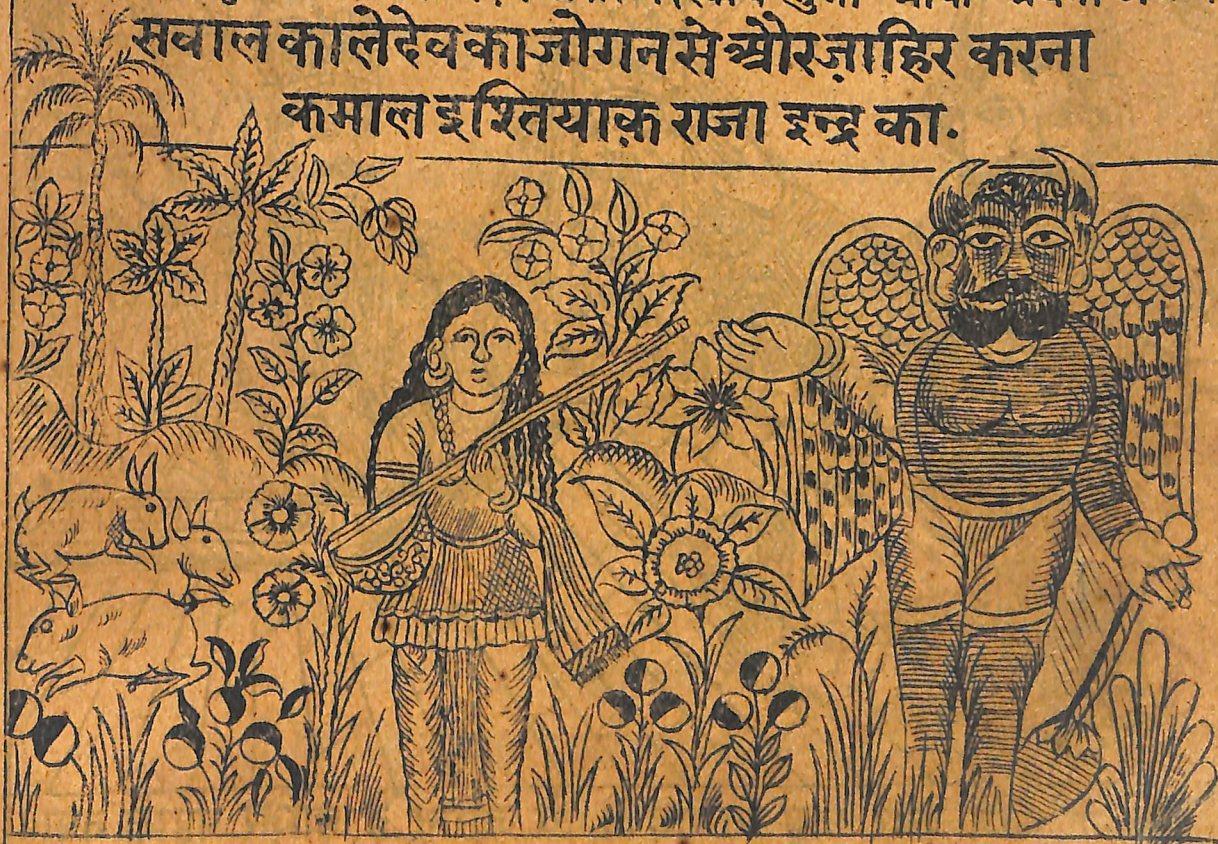 सवाल काले देव का जोगन से और ज़ाहिर करना
कमाल इश्तियाक़ राजा इन्द्र का.